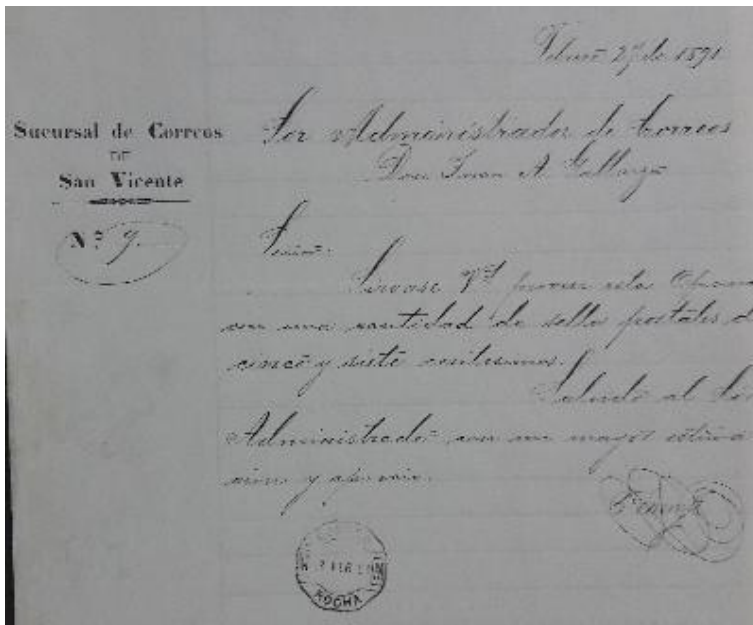 Sucursal de Correos
DE
San Vicente
Nº 9.
de 1891
Sor Administrador de Correos
Don Juan A.
Señor.
Sirvase Vd proveer esta
con una cantidad de sellos postales d
cinco y siete centesimos.
Saludo al Sor
Administrador con mi mayor estima
cion y aprecio.
ROCHA